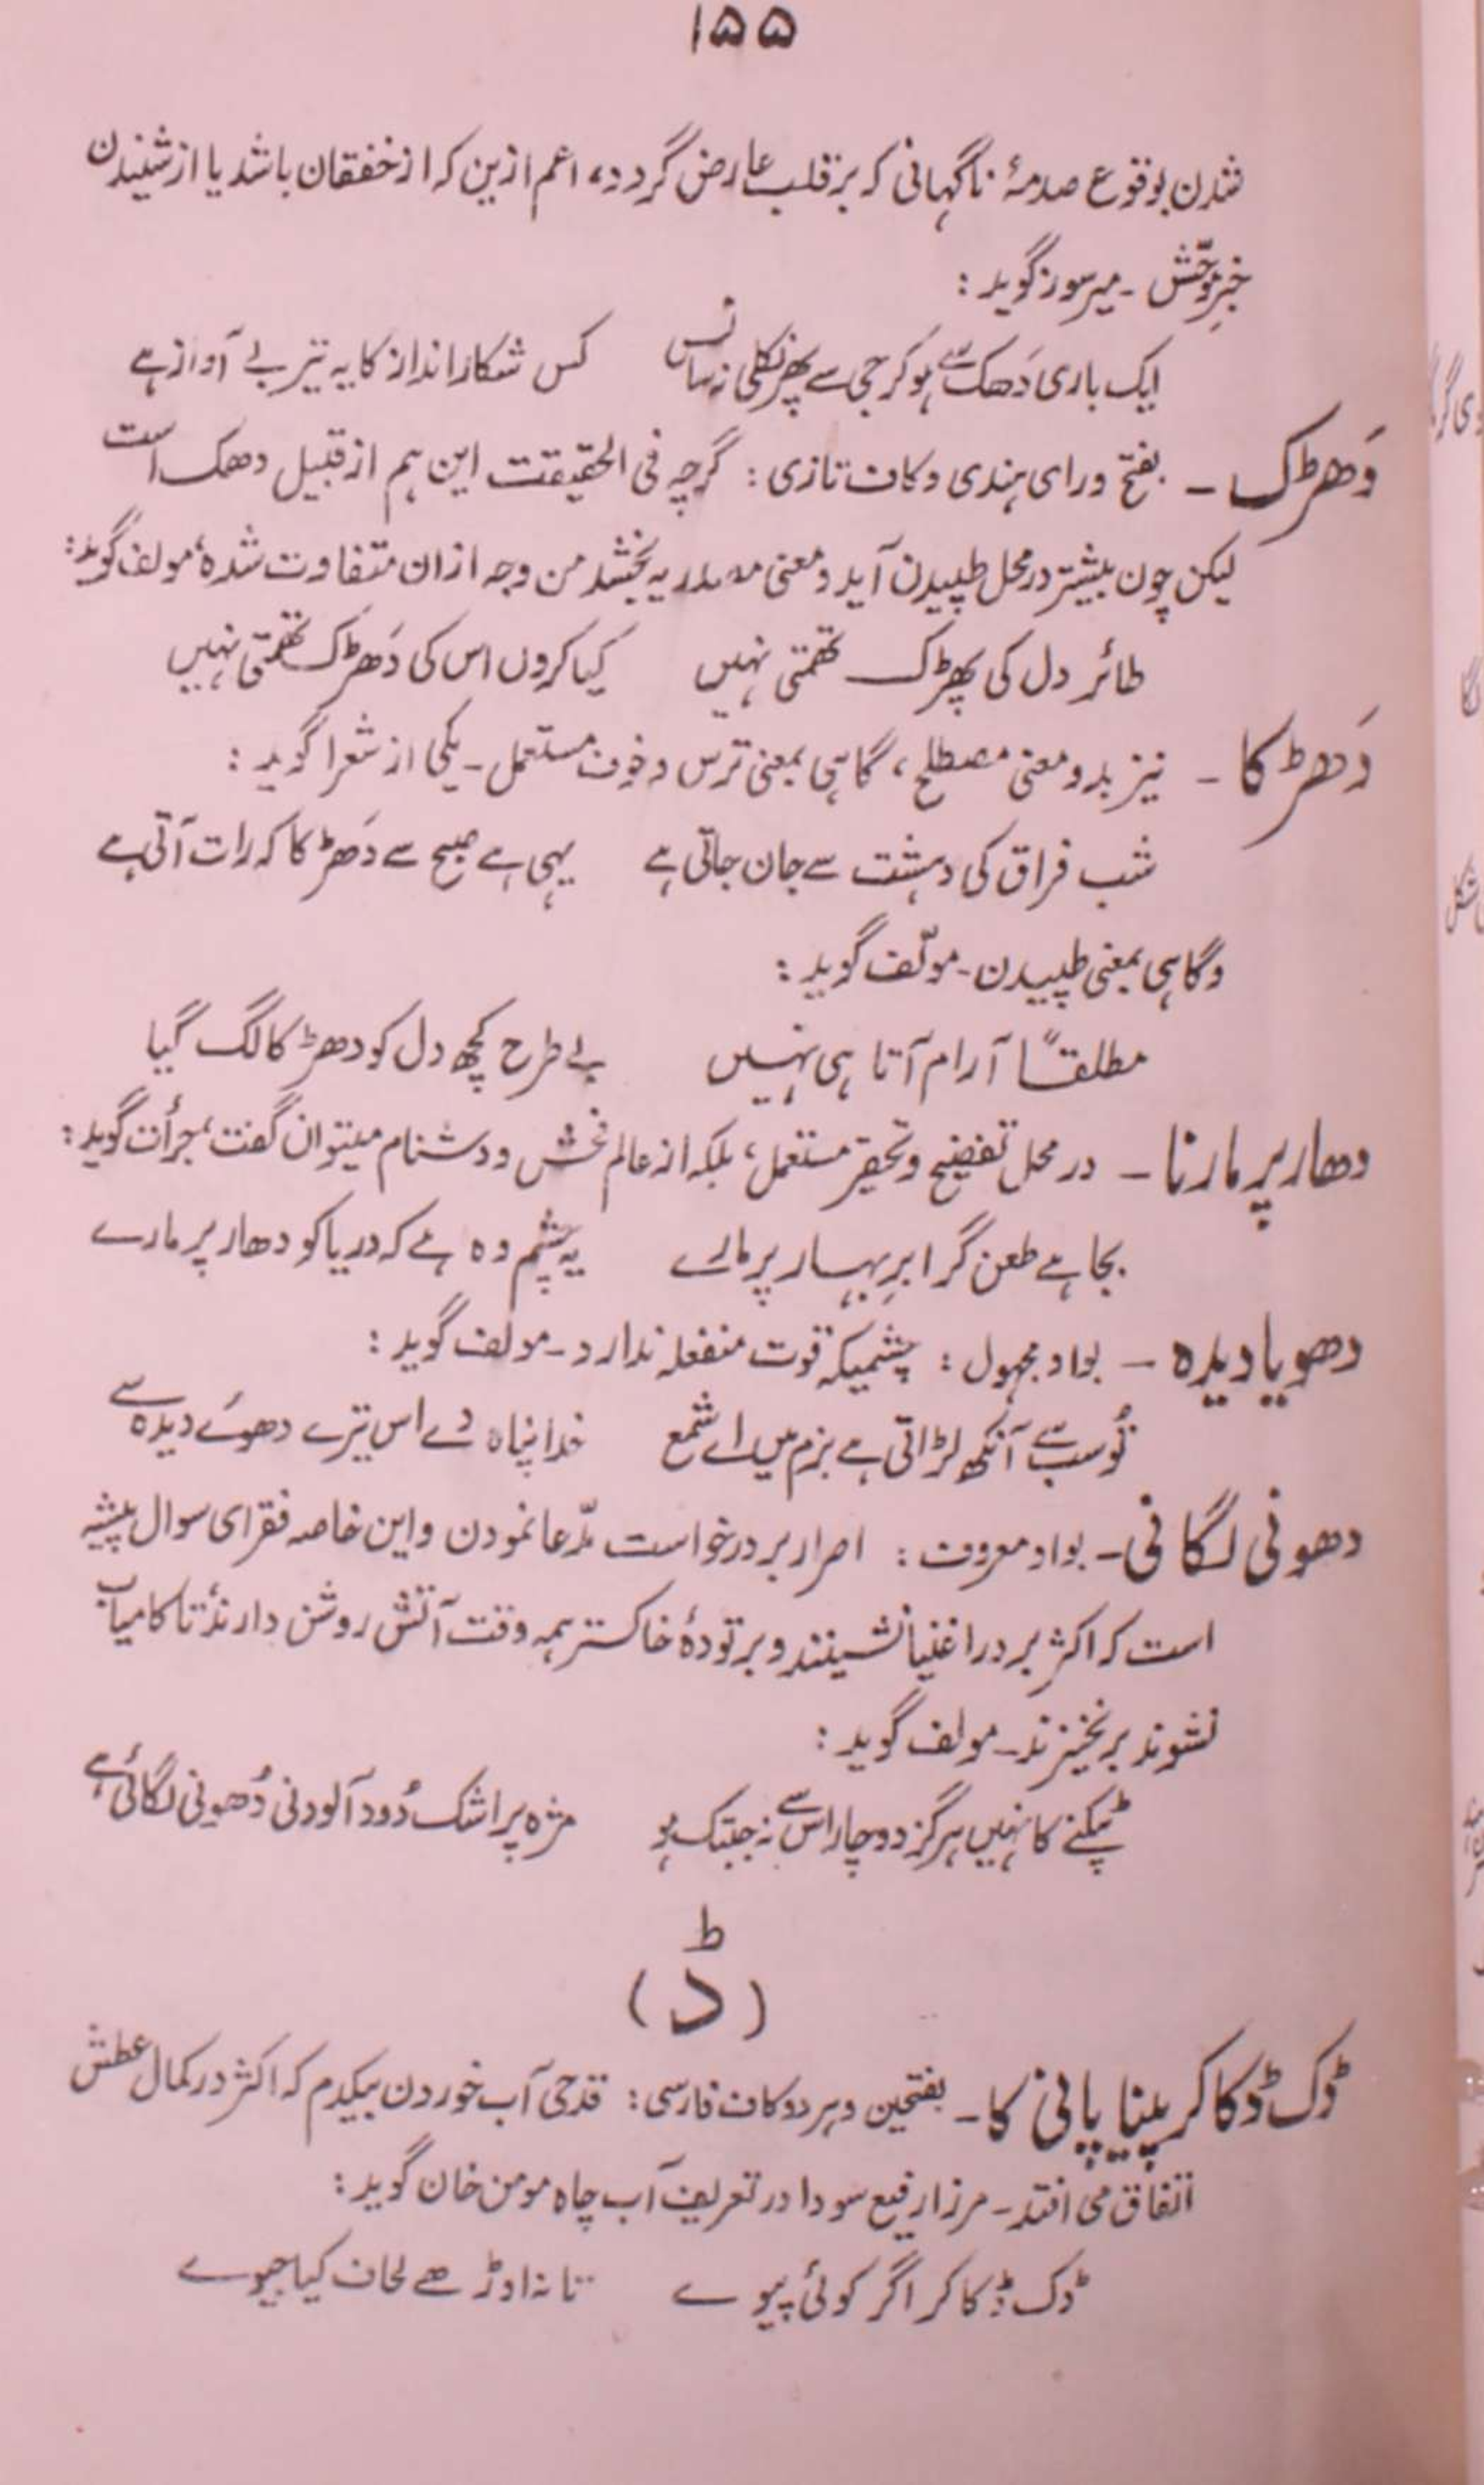 ۱۵۵
شدن بوقوع صدمۂ ناگہانی کہ بر قلب عارض گردد، اعم ازین کہ از خفقان باشد یا از شنیدن
خبرِ موحّش - میر سوز گوید :
ایک باری دَھک سے ہو کر جی سے پھر نکلی نہ سانس کس شکار انداز کا یہ تیر بے آواز ہے
دَھڑک - بفتح و رای ہندی و کاف تازی : گرچہ فی الحقیقت این ہم از قبیل دھک است
لیکن چون بیشتر در محل طپیدن آید و معنی مصدریہ بخشد من وجہ ازان متفاوت شدہ، مولف گوید :
طائر دل کی پھڑک تھمتی نہیں کیا کروں اس کی دَھڑک تھمتی نہیں
دَھڑکا - نیز بدو معنی مصطلح، گاہی بمعنی ترس و خوف مستعمل - یکی از شعرا گوید :
شب فراق کی دہشت سے جان جاتی ہے یہی ہے صبح سے دَھڑکا کہ رات آتی ہے
و گاہی بمعنی طپیدن - مولّف گوید :
مطلقاً آرام آتا ہی نہیں بے طرح کچھ دل کو دھڑکا لگ گیا
دھار پر مارنا - در محل تفضیح و تحقیر مستعمل، بلکہ از عالم فحش و دشنام میتوان گفت، جرأت گوید :
بجا ہے طعن گر ابرِ بہار پر مارے یہ چشم وہ ہے کہ دریا کو دھار پر مارے
دھویا دیدہ - بواو مجہول : چشمیکہ قوت منفعلہ ندارد - مولف گوید :
تُو سب سے آنکھ لڑاتی ہے بزم میں اے شمع خدا پناہ دے اس تیرے دھوئے دیدہ سے
دھونی لگانی - بواو معروف : اصرار بر درخواست مدّعا نمودن و این خاصہ فقرای سوال پیشہ
است کہ اکثر بر در اغنیا نشینند و بر تودۂ خاکستر ہمہ وقت آتش روشن دارند، تا کامیاب
نشوند بر نخیزند - مولف گوید :
ٹپکنے کا نہیں ہرگز دوچار اس سے نہ جبتک ہو مژہ پر اشک دُود آلود نی دُھونی لگائی ہے
(ڈ)
ڈک ڈکا کر پینا پانی کا - بفتحین و ہر دو کاف فارسی : قدحی آب خوردن بیکدم کہ اکثر در کمال عطش
اتفاق می افتد - مرزا رفیع سودا در تعریف آب چاہ مومن خان گوید :
ڈک ڈکا کر اگر کوئی پیوے تا نہ اوڑھے لحاف کیا جیوے